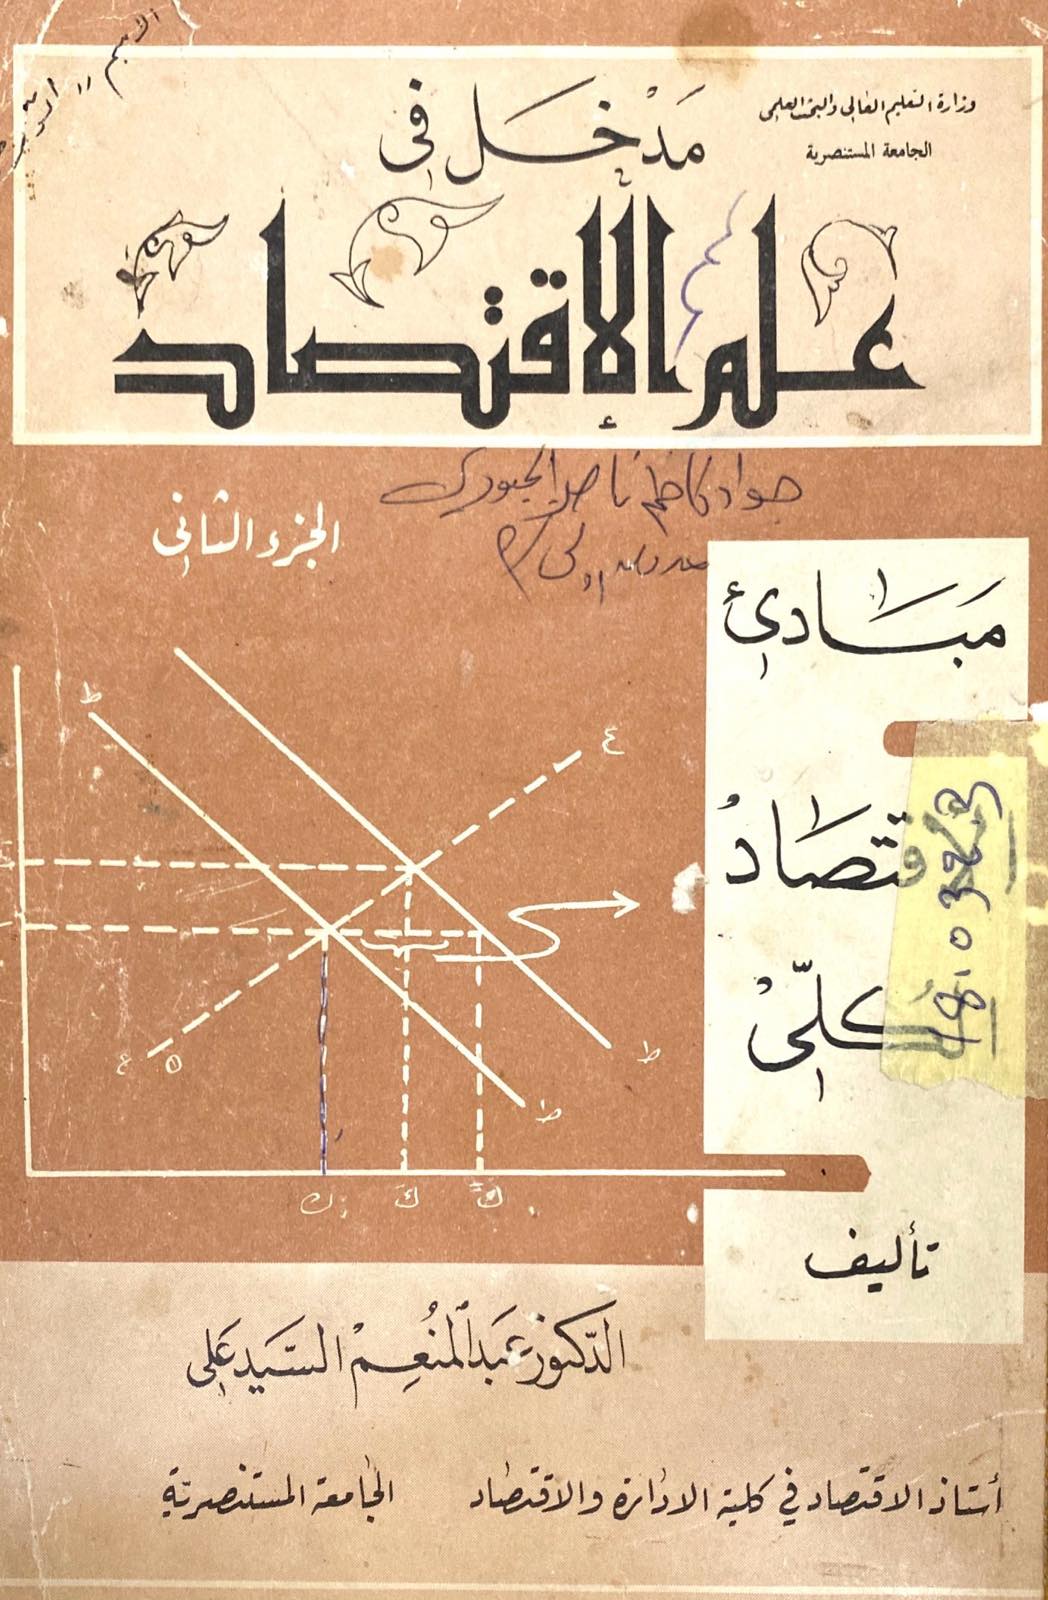 وزارة التعليم العالي والبحث العلمي
الجامعة المستنصرية
مَدْخَل في
علم الإقتصاد
جواد كاظم ناصر الجبوري
الجزء الثاني
مَبَادئ
قتصَاد
كلّي
ط
ع
ط
ط
ع
ك
كَ
كً
تأليف
الدّكتور عَبد المنُعِمْ السَّيد عَلي
أستاذ الاقتصاد في كلية الادارة والاقتصاد الجامعة المستنصريّة